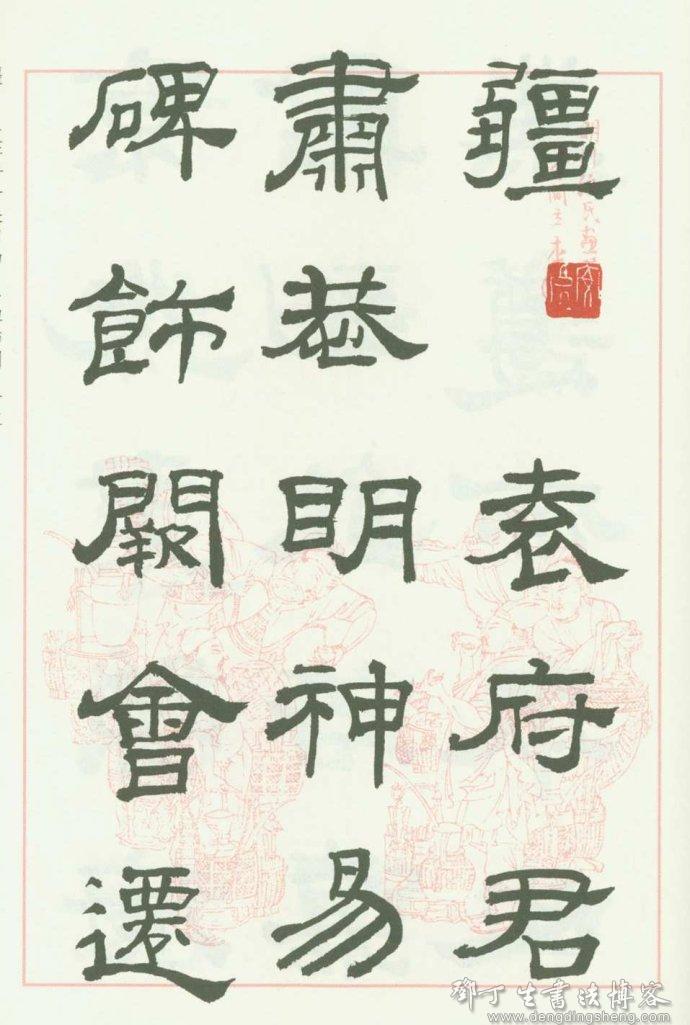 疆 袁府君
肅恭明神易
碑飾闕會遷
鄧丁生書法博客
www.dengdingsheng.com